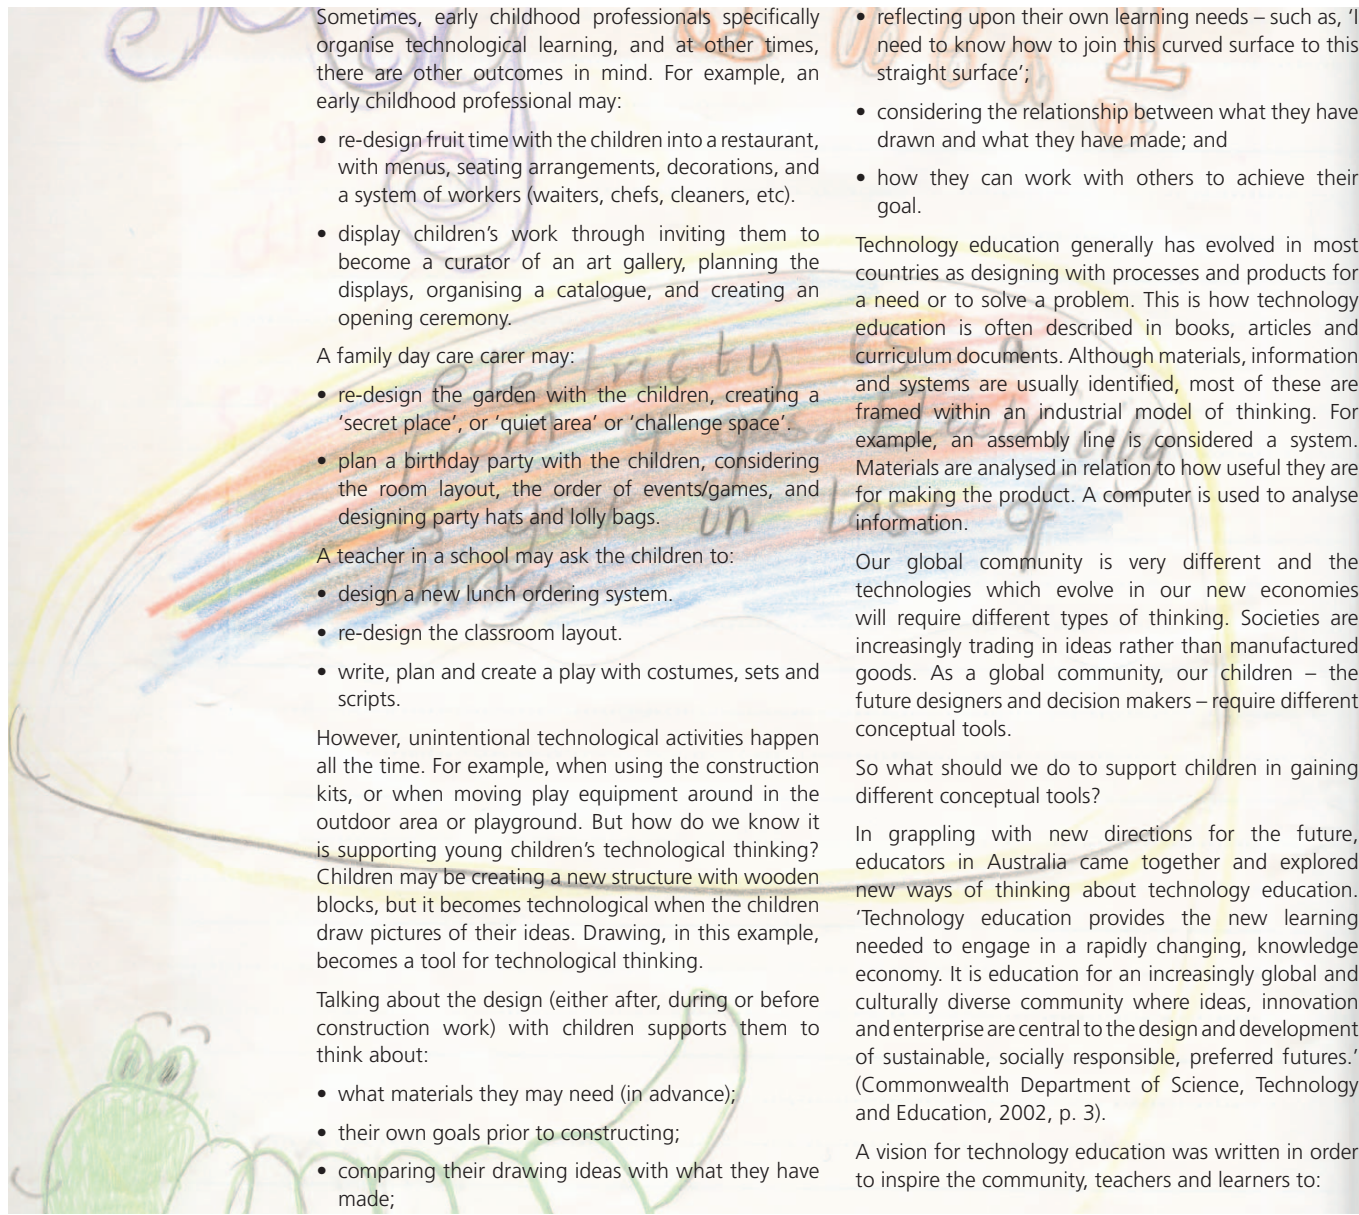 Sometimes, early childhood professionals specifically
organise technological learning, and at other times,
there are other outcomes in mind. For example, an
early childhood professional may:
• re-design fruit time with the children into a restaurant,
with menus, seating arrangements, decorations, and
a system of workers (waiters, chefs, cleaners, etc).
• display children’s work through inviting them to
become a curator of an art gallery, planning the
displays, organising a catalogue, and creating an
opening ceremony.
A family day care carer may:
• re-design the garden with the children, creating a
‘secret place’, or ‘quiet area’ or ‘challenge space’.
• plan a birthday party with the children, considering
the room layout, the order of events/games, and
designing party hats and lolly bags.
A teacher in a school may ask the children to:
• design a new lunch ordering system.
• re-design the classroom layout.
• write, plan and create a play with costumes, sets and
scripts.
However, unintentional technological activities happen
all the time. For example, when using the construction
kits, or when moving play equipment around in the
outdoor area or playground. But how do we know it
is supporting young children’s technological thinking?
Children may be creating a new structure with wooden
blocks, but it becomes technological when the children
draw pictures of their ideas. Drawing, in this example,
becomes a tool for technological thinking.
Talking about the design (either after, during or before
construction work) with children supports them to
think about:
• what materials they may need (in advance);
• their own goals prior to constructing;
• comparing their drawing ideas with what they have
made;
• reflecting upon their own learning needs – such as, ‘I
need to know how to join this curved surface to this
straight surface’;
• considering the relationship between what they have
drawn and what they have made; and
• how they can work with others to achieve their
goal.
Technology education generally has evolved in most
countries as designing with processes and products for
a need or to solve a problem. This is how technology
education is often described in books, articles and
curriculum documents. Although materials, information
and systems are usually identified, most of these are
framed within an industrial model of thinking. For
example, an assembly line is considered a system.
Materials are analysed in relation to how useful they are
for making the product. A computer is used to analyse
information.
Our global community is very different and the
technologies which evolve in our new economies
will require different types of thinking. Societies are
increasingly trading in ideas rather than manufactured
goods. As a global community, our children – the
future designers and decision makers – require different
conceptual tools.
So what should we do to support children in gaining
different conceptual tools?
In grappling with new directions for the future,
educators in Australia came together and explored
new ways of thinking about technology education.
‘Technology education provides the new learning
needed to engage in a rapidly changing, knowledge
economy. It is education for an increasingly global and
culturally diverse community where ideas, innovation
and enterprise are central to the design and development
of sustainable, socially responsible, preferred futures.’
(Commonwealth Department of Science, Technology
and Education, 2002, p. 3).
A vision for technology education was written in order
to inspire the community, teachers and learners to:
electricity is a
from a Electricity
is in of
thing